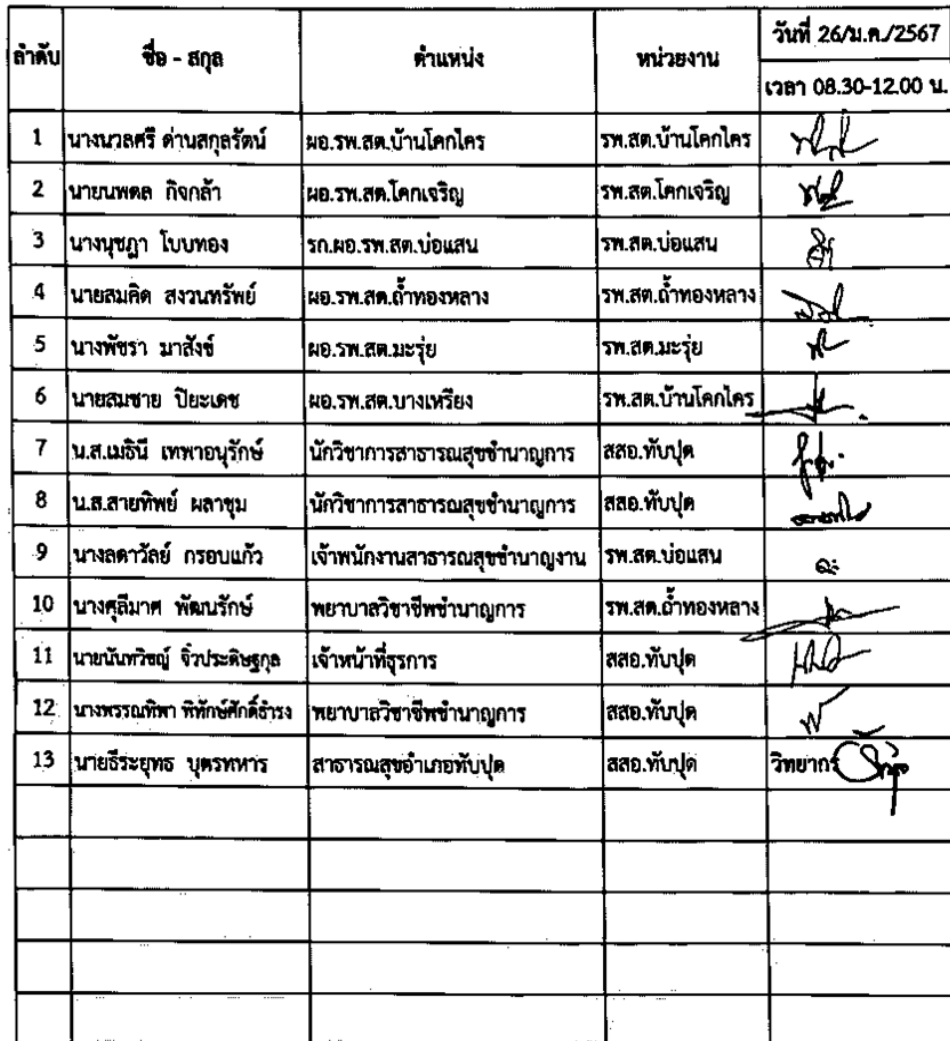 ลำดับ ชื่อ - สกุล ตำแหน่ง หน่วยงาน วันที่ 26/ม.ค./2567
เวลา 08.30-12.00 น.
1 นางนวลศรี ด่านสกุลรัตน์ ผอ.รพ.สต.บ้านโคกไคร รพ.สต.บ้านโคกไคร
2 นายนพดล กิจกล้า ผอ.รพ.สต.โคกเจริญ รพ.สต.โคกเจริญ
3 นางนุชฎา โบบทอง รก.ผอ.รพ.สต.บ่อแสน รพ.สต.บ่อแสน
4 นายสมคิด สงวนทรัพย์ ผอ.รพ.สต.ถ้ำทองหลาง รพ.สต.ถ้ำทองหลาง
5 นางพัชรา มาสังข์ ผอ.รพ.สต.มะรุ่ย รพ.สต.มะรุ่ย
6 นายสมชาย ปิยะเดช ผอ.รพ.สต.บางเหรียง รพ.สต.บ้านโคกไคร
7 น.ส.เมธินี เทพาอนุรักษ์ นักวิชาการสาธารณสุขชำนาญการ สสอ.ทับปุด
8 น.ส.สายทิพย์ ผลาชุม นักวิชาการสาธารณสุขชำนาญการ สสอ.ทับปุด
9 นางลดาวัลย์ กรอบแก้ว เจ้าพนักงานสาธารณสุขชำนาญงาน รพ.สต.บ่อแสน
10 นางศุลีมาศ พัฒนรักษ์ พยาบาลวิชาชีพชำนาญการ รพ.สต.ถ้ำทองหลาง
11 นายนันทวิชญ์ จิ๋วประดิษฐกุล เจ้าหน้าที่ธุรการ สสอ.ทับปุด
12 นางพรรณทิพา พิทักษ์ศักดิ์ธำรง พยาบาลวิชาชีพชำนาญการ สสอ.ทับปุด
13 นายธีระยุทธ บุตรทหาร สาธารณสุขอำเภอทับปุด สสอ.ทับปุด วิทยากร